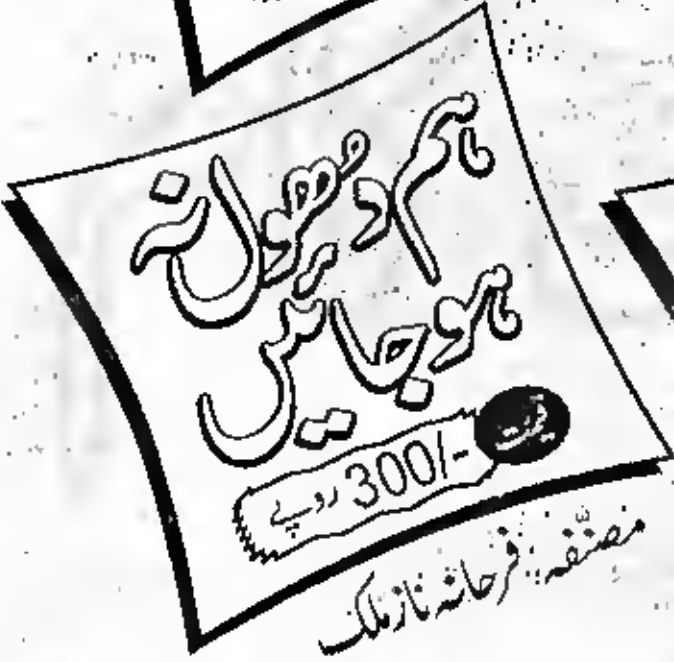 ہم دُھول نہ
ہو جائیں
قیمت -/300 روپے
مصنّفہ: فرحانہ ناز ملک